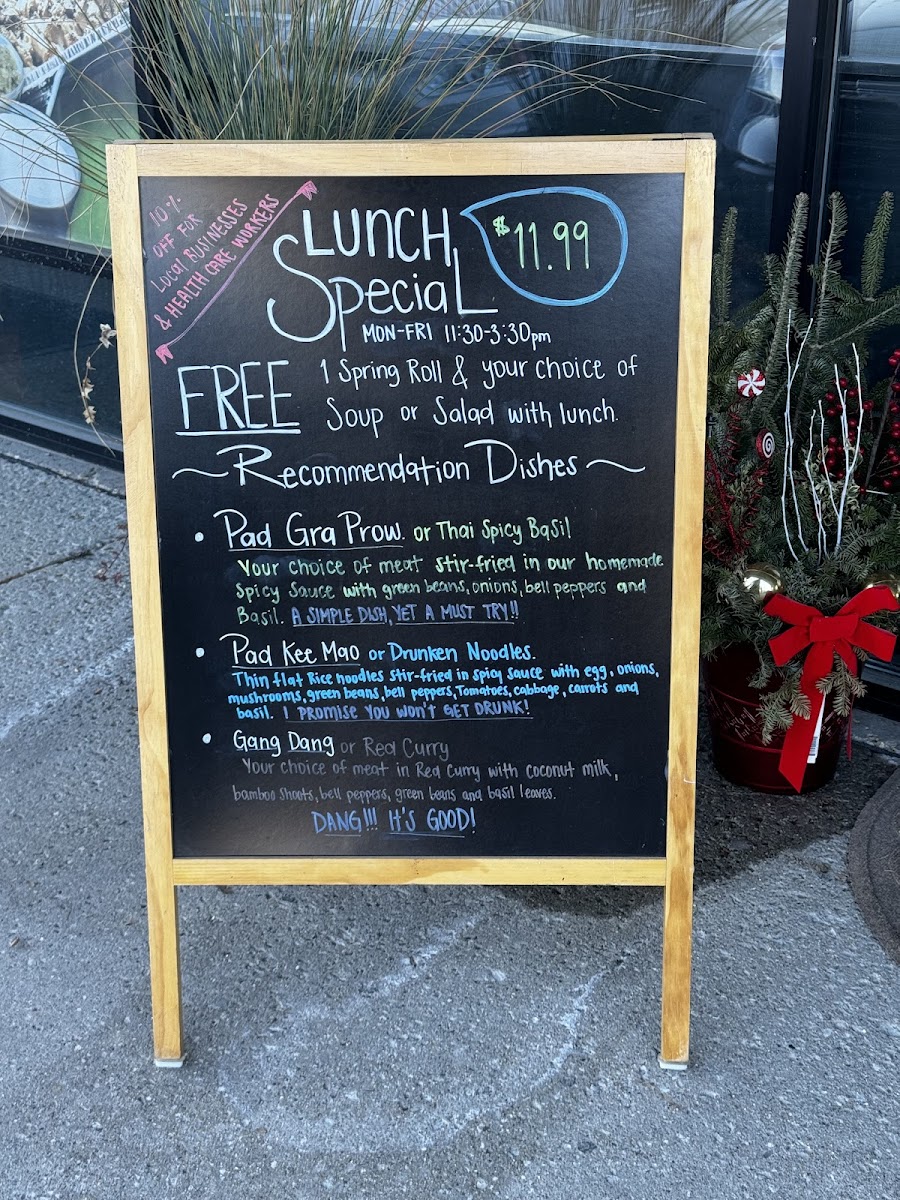 10%
OFF FOR
LOCAL BUSINESSES
& HEALTH CARE WORKERS
LUNCH
Special
$11.99
MON-FRI 11:30-3:30pm
FREE 1 Spring Roll & your choice of
Soup or Salad with lunch.
~Recommendation Dishes~
• Pad Gra Prow. or Thai Spicy Basil
Your choice of meat stir-fried in our homemade
Spicy Sauce with green beans, onions, bell peppers and
Basil. A SIMPLE DISH, YET A MUST TRY!!
• Pad Kee Mao or Drunken Noodles.
Thin flat Rice noodles stir-fried in spicy sauce with egg, onions,
mushrooms, green beans, bell peppers, Tomatoes, cabbage, carrots and
basil. I PROMISE YOU WON'T GET DRUNK!
• Gang Dang or Red Curry
Your choice of meat in Red Curry with coconut milk,
bamboo shoots, bell peppers, green beans and basil leaves.
DANG!!! IT'S GOOD!